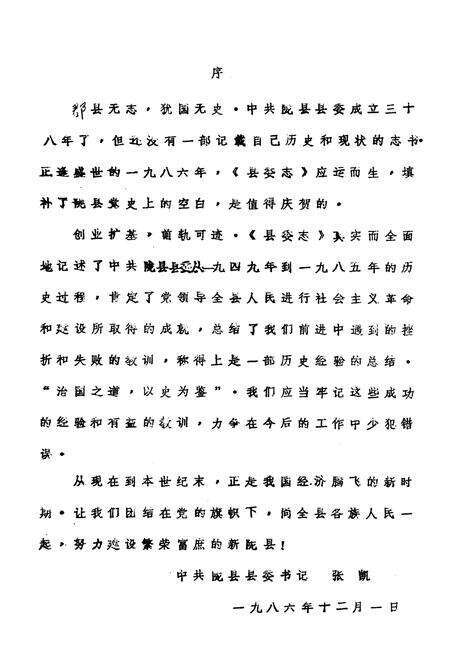 序
郡县无志，犹国无史。中共陇县县委成立三十
八年了，但还没有一部记载自己历史和现状的志书。
正逢盛世的一九八六年，《县委志》应运而生，填
补了陇县党史上的空白，是值得庆贺的。
创业扩基，前轨可迹。《县委志》真实而全面
地记述了中共陇县县委从一九四九年到一九八五年的历
史过程，肯定了党领导全县人民进行社会主义革命
和建设所取得的成就，总结了我们前进中遇到的挫
折和失败的教训，称得上是一部历史经验的总结。
“治国之道，以史为鉴”。我们应当牢记这些成功
的经验和有益的教训，力争在今后的工作中少犯错
误。
从现在到本世纪末，正是我国经济腾飞的新时
期。让我们团结在党的旗帜下，同全县各族人民一
起，努力建设繁荣富庶的新陇县！
中共陇县县委书记 张凯
一九八六年十二月一日